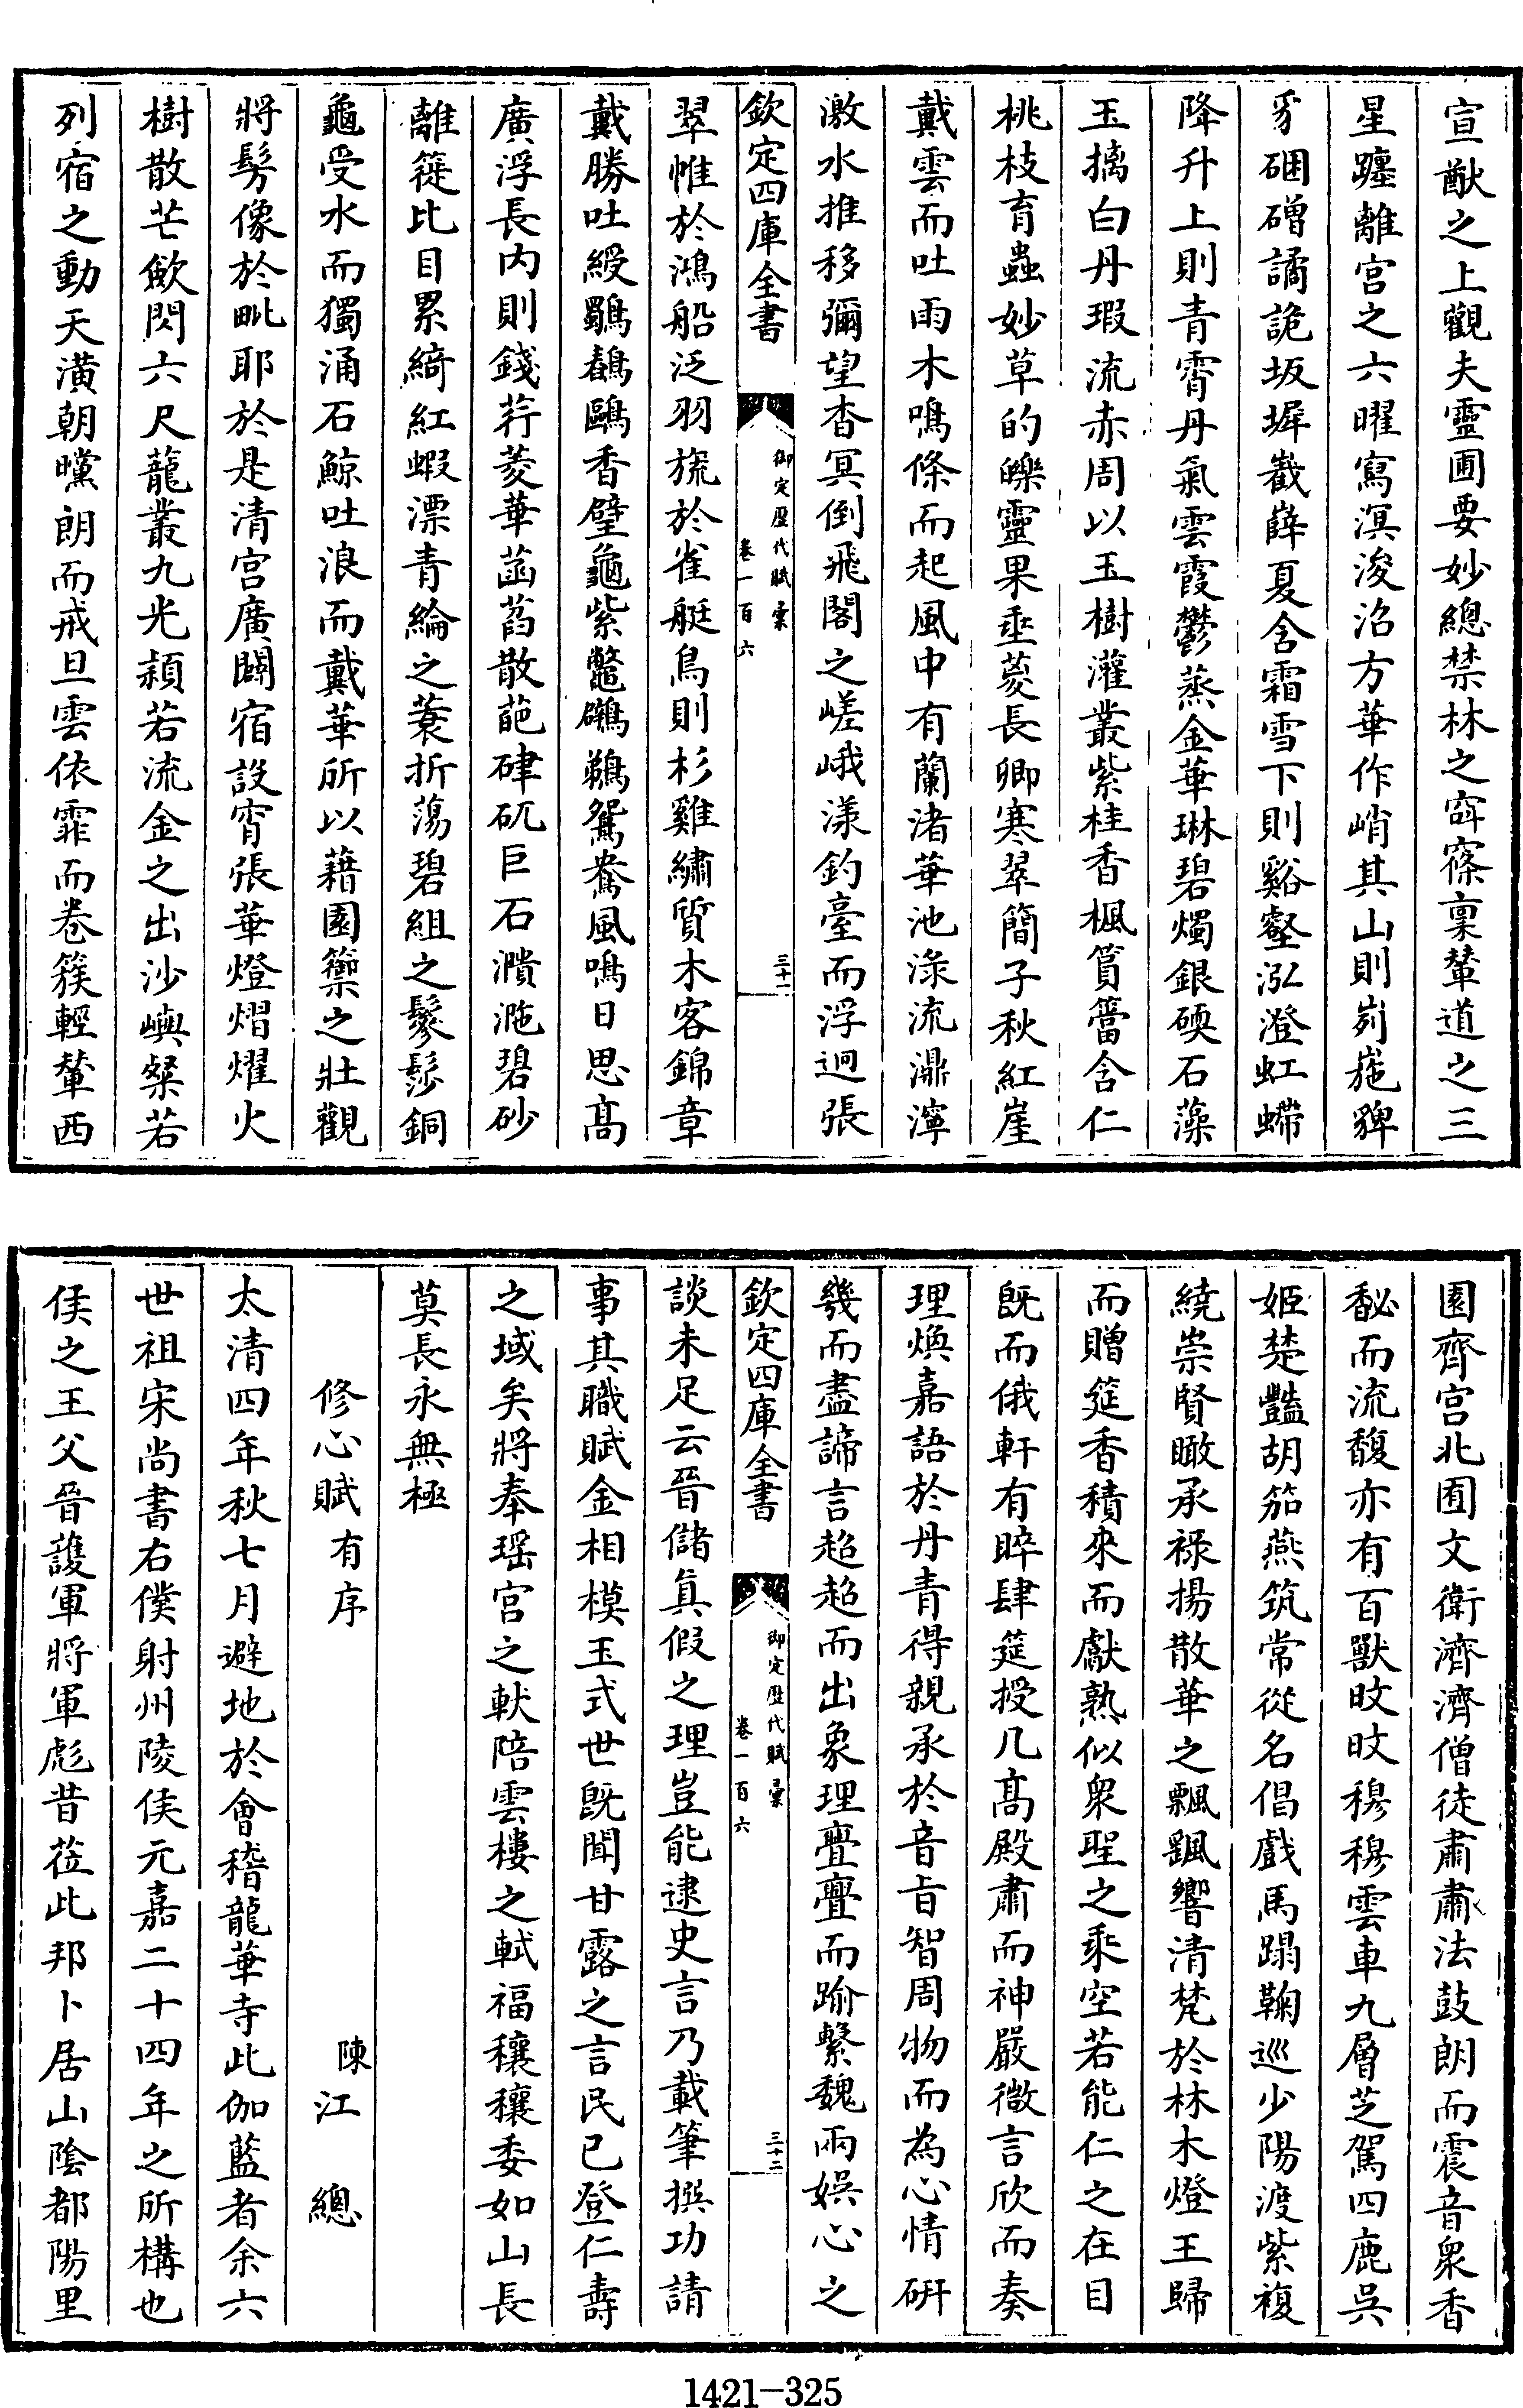 宣猷之上觀夫靈圃要妙總禁林之窲寀稟輦道之三
星躔離宮之六曜寫溟浚沿方華作峭其山則峛崺豾
豸硱磳譎詭坂墀嶻嶭夏含霜雪下則谿壑泓澄虹螮
降升上則青霄丹氣雲霞鬱蒸金華琳碧燭銀碝石藻
玉摛白丹瑕流赤周以玉樹灌叢紫桂香楓篔簹含仁
桃枝育蟲妙草的皪靈果垂蔆長卿寒翠簡子秋紅崖
戴雲而吐雨木鳴條而起風中有蘭渚華池淥流瀰濘
激水推移彌望杳冥倒飛閣之嵯峨漾釣臺而浮迥張
欽定四庫全書
御定歷代賦彙
卷一百六
三十一
翠帷於鴻船泛羽旄於雀艇鳥則杉雞繡質木客錦章
戴勝吐綬鸀鷭鷗香壁龜紫鼈鸊鵜鴛鴦風鳴日思高
廣浮長內則錢荇菱華菡萏散葩硉矹巨石濆沲碧砂
離簁比目累綺紅蝦漂青綸之萋折蕩碧組之鬖髿銅
龜受水而獨涌石鯨吐浪而戴華所以藉園籞之壯觀
將髣像於毗耶於是清宮廣闢宿設宵張華燈熠燿火
樹散芒歘閃六尺龍叢九光潁若流金之出沙嶼粲若
列宿之動天潢朝曭朗而戒旦雲依霏而卷簇輕輦西
園齊宮北囿文衛濟濟僧徒肅肅法鼓朗而震音衆香
馝而流馥亦有百獸旼旼穆穆雲車九層芝駕四鹿吳
姬楚豔胡笳燕筑常從名倡戲馬蹋鞠巡少陽渡紫複
繞崇賢瞰承祿揚散華之飄颻響清梵於林木燈王歸
而贈筵香積來而獻熟似衆聖之乘空若能仁之在目
旣而俄軒有睟肆筵授几高殿肅而神嚴微言欣而奏
理煥嘉語於丹青得親承於音旨智周物而為心情研
幾而盡諦言超超而出象理亹亹而踰繫魏兩娛心之
欽定四庫全書
御定歷代賦彙
卷一百六
三十二
談未足云晉儲真假之理豈能逮史言乃載筆撰功請
事其職賦金相模玉式世旣聞甘露之言民已登仁壽
之域矣將奉瑶宮之軑陪雲樓之軾福穰穰委如山長
莫長永無極
修心賦 有序 陳江總
太清四年秋七月避地於會稽龍華寺此伽藍者余六
世祖宋尚書右僕射州陵侯元嘉二十四年之所構也
侯之王父晉護軍將軍彪昔莅此邦卜居山陰都陽里
1421-325